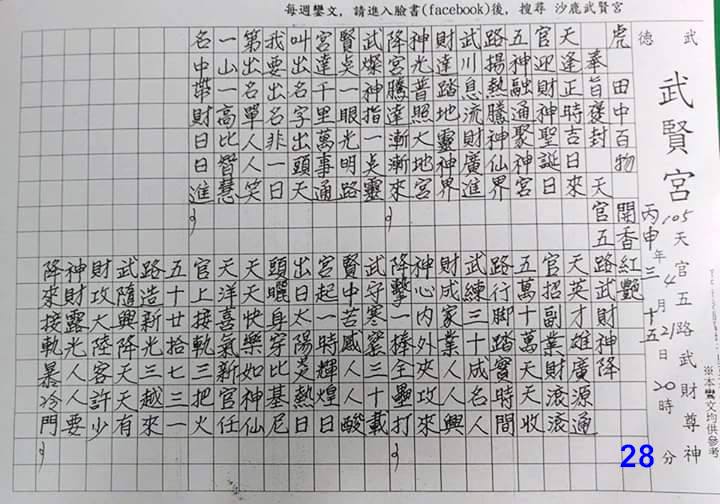 每週鑾文，請進入臉書(facebook)後，搜尋 沙鹿武賢宮
武德
武賢宮
天官五路武財尊神
105年4月21日20時 分
丙申 三 十五
※本鸞文均供參考
虎 田中百物 開香紅艷
奉旨護封 天官五路武財神降源通
天逢正時吉日來
官迎財神聖誕日
五神融通聚神宮
路揚熱騰神仙界
武川息流財廣進
財達踏地靈神界
神光普照大地宮
降宮騰達漸漸來
武燦神指一点靈
賢点一眼光明路
宮達千里萬事通
叫出名字出頭天
我要出名非一日
第出名單人人笑
一山一高比智慧
名中帶財日日進
天英才雄廣滾滾
官招副業財天收
五萬十萬天時間
路行脚踏寶名人
武練三十成人興
財成家業人攻來
神心內外來壘打
降擊一棒全十載
武守寒窯三人酸
賢中苦感人
宮起一時輝煌日
出日太陽炎熱日
頭曬身穿比基尼
天天快樂如神仙
天洋喜氣新官任
官上接軌三把火
五十廿拾七三一
路造新光三越來
武隨興降天天有
財攻大陸客許少
神財露光人人要
降來接軌暴冷門
28